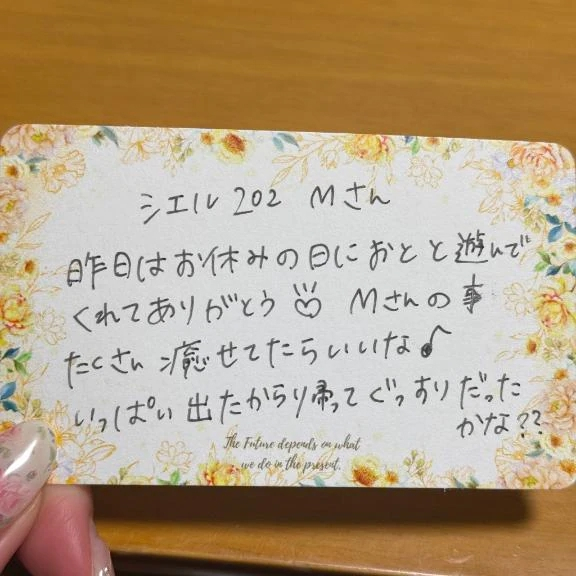 シエル 202 Mさん
昨日はお休みの日におとと遊んで
くれてありがとう Mさんの事
たくさん癒せてたらいいな♪
いっぱい出たからり帰ってぐっすりだった
かな??
The Future depends on what
we do in the present.